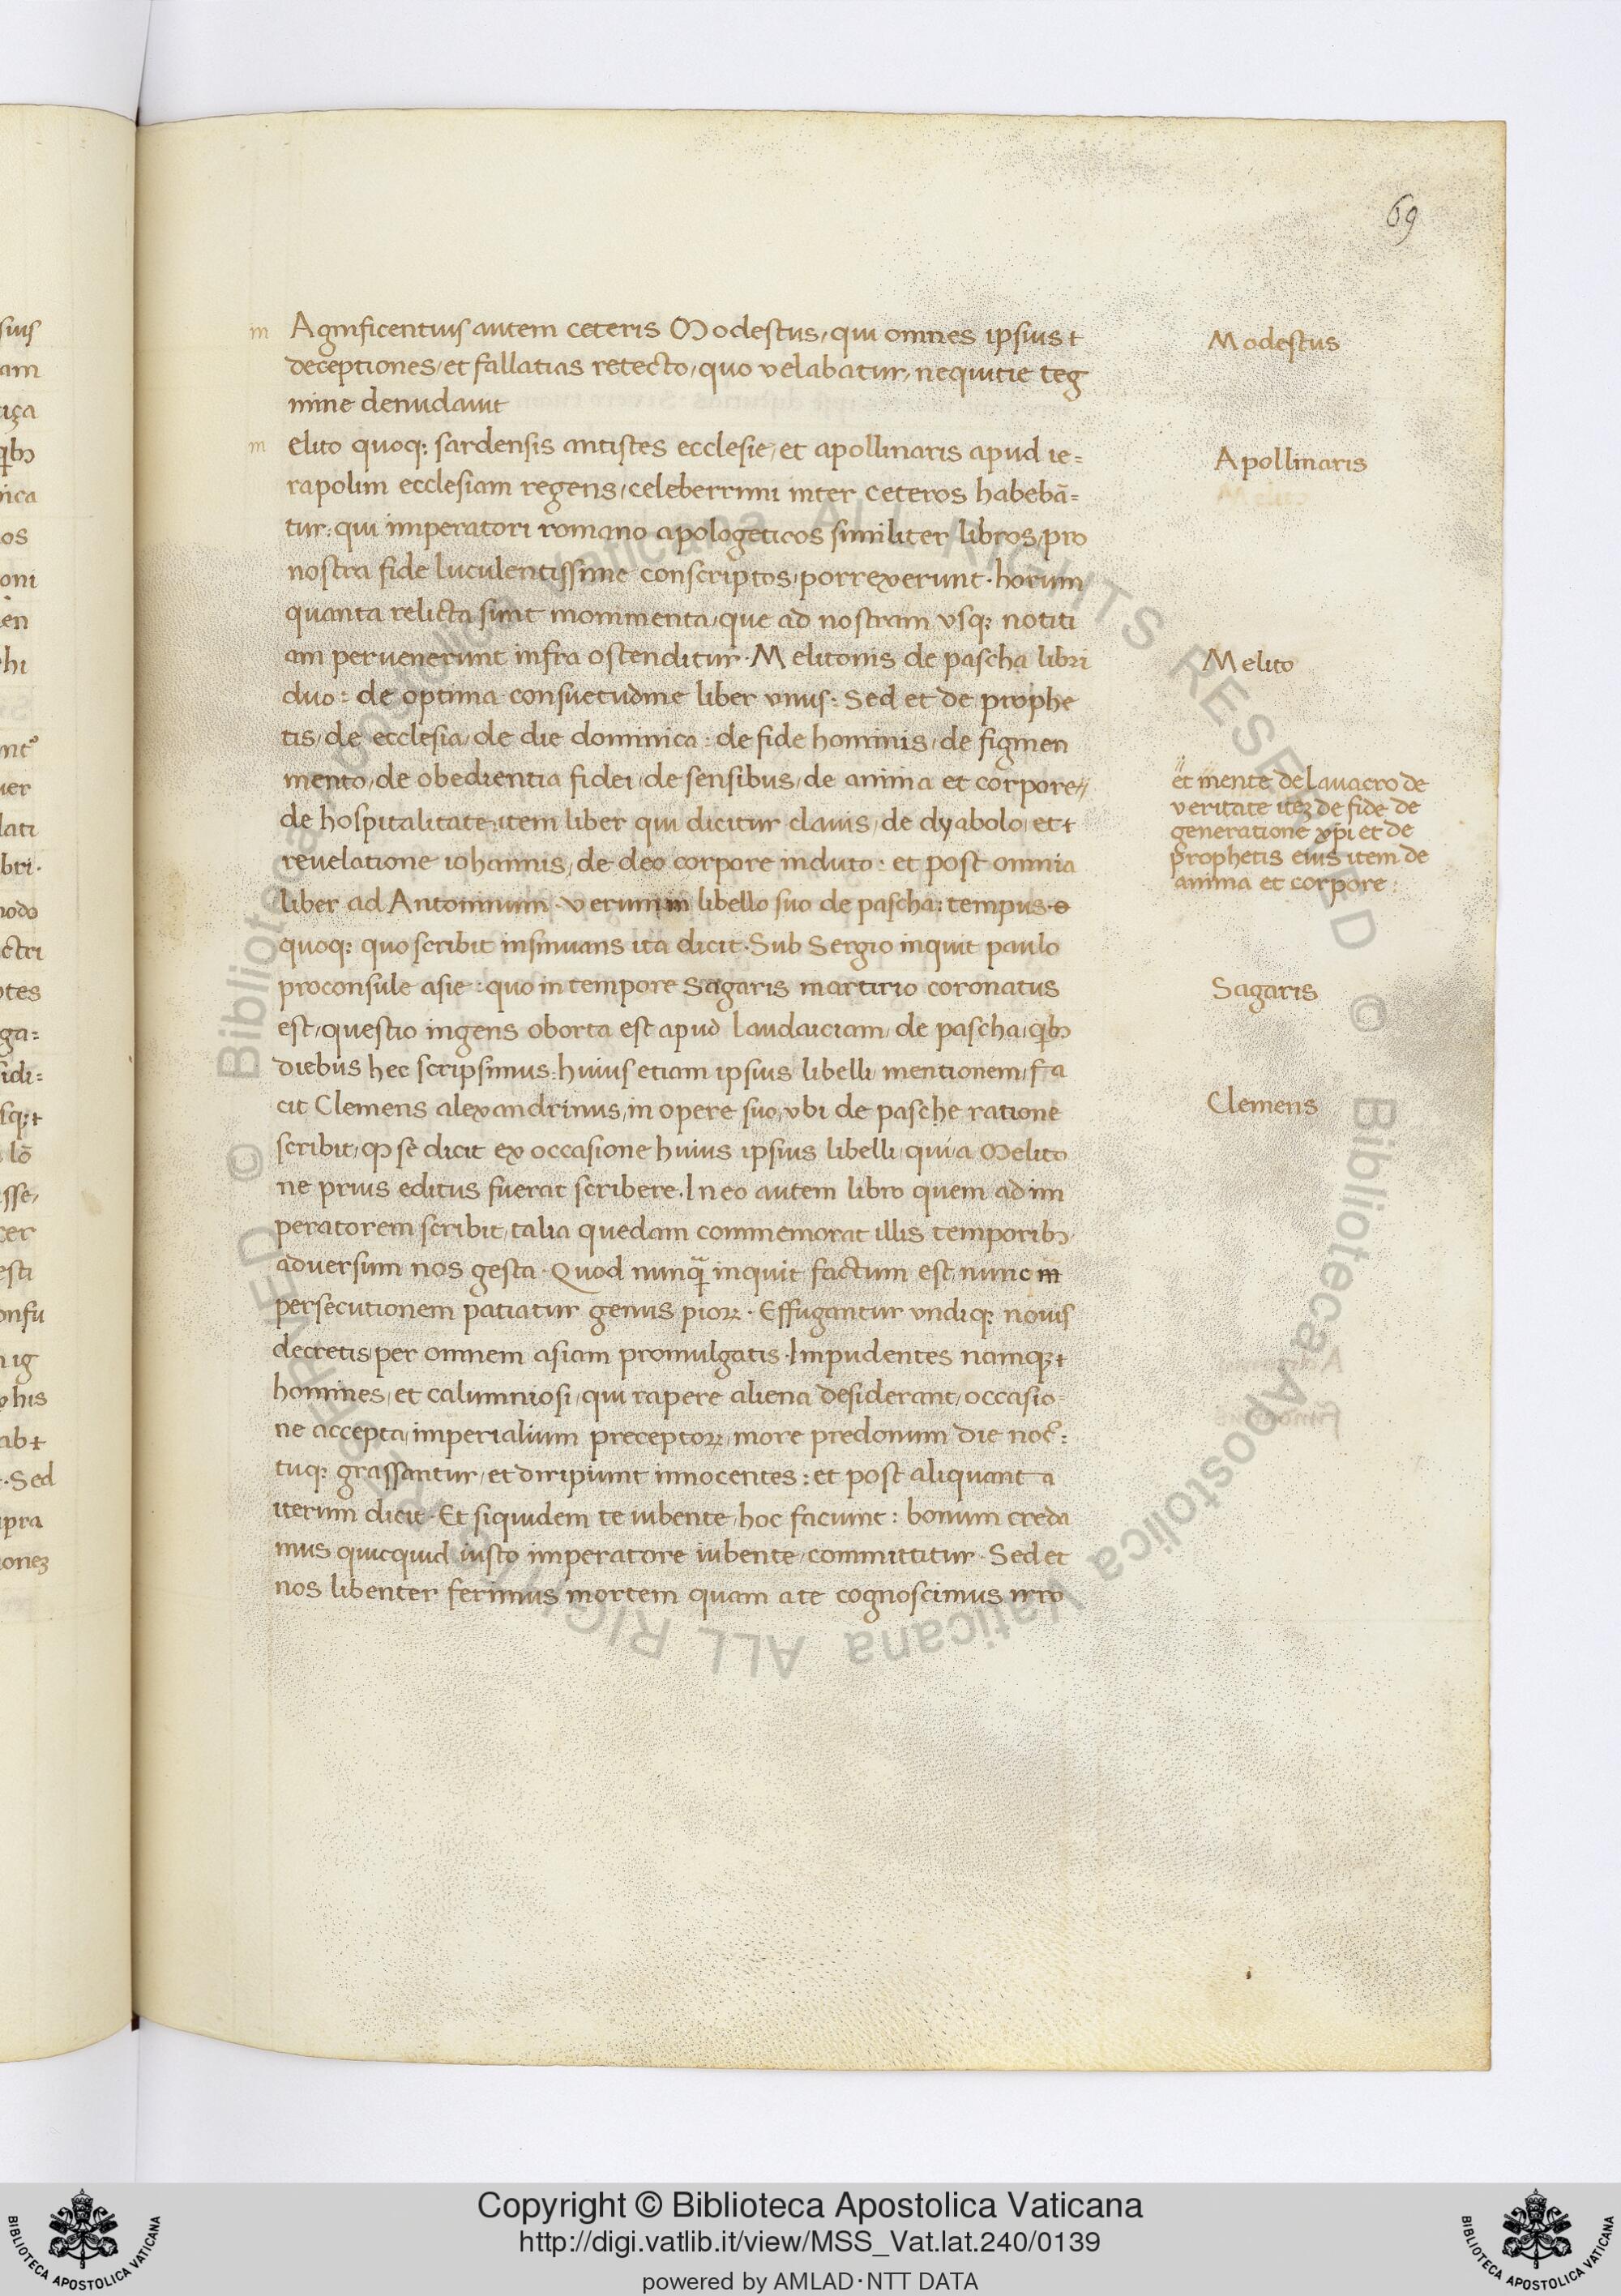 69
m Agnificentius autem ceteris Modestus, qui omnes ipsius t
deceptiones, et fallatias retecto, quo velabatur, nequitie teg
mine denudavit
m elito quoq; sardensis antistes ecclesie, et apollinaris apud ie=
rapolim ecclesiam regens, celeberrimi inter ceteros habebā=
tur: qui imperatori romano apologeticos similiter libros, pro
nostra fide luculentissime conscriptos, porrexerunt. horum
quanta relicta sunt monimenta, que ad nostram vsq; notiti
am pervenerunt infra ostenditur. Melitonis de pascha libri
duo: de optima consuetudine liber vnus: Sed et de prophe
tis, de ecclesia, de die dominica: de fide hominis, de figmen
mento, de obedientia fidei, de sensibus, de anima et corpore//
de hospitalitate: item liber qui dicitur clavis, de dyabolo, et t
revelatione iohannis, de deo corpore induto: et post omnia
liber ad Antoninum. verum in libello suo de pascha: tempus.
quoq; quo scribit insinuans ita dicit. Sub Sergio inquit paulo
proconsule asie: quo in tempore Sagaris martirio coronatus
est, questio ingens oborta est apud laudaiciam, de pascha, qb3
diebus hec scripsimus: huius etiam ipsius libelli, mentionem, fa
cit Clemens alexandrinus, in opere suo, vbi de pasche ratione
scribit, qp se dicit ex occasione huius ipsius libelli, qui a Melito
ne prius editus fuerat scribere. In eo autem libro quem ad im
peratorem scribit, talia quedam commemorat illis temporib3
adversum nos gesta. Quod nunq̄ inquit factum est, nunc in
persecutionem patiatur genus pioꝝ. Effugantur vndiq; novis
decretis, per omnem asiam promulgatis. Impudentes namq; t
homines, et calumniosi, qui rapere aliena desiderant, occasio-
ne accepta, imperialium preceptoꝝ, more predonum die noc̄:
tuq; grassantur, et diripiunt innocentes: et post aliquant a
iterum dicit. Et siquidem te iubente, hoc faciunt: bonum creda
mus quicquid iusto imperatore iubente, committitur. Sed et
nos libenter ferimus mortem quam a te cognoscimus irro
Modestus
Apollinaris
Melito
Melito
et mente de lavacro de
veritate itez de fide de
generatione xpi et de
prophetis eius item de
anima et corpore:
Sagaris
Clemens
© Biblioteca Apostolica Vaticana ALL RIGHTS RESERVED © Biblioteca Apostolica Vaticana ALL RIGHTS RESERVED
Copyright © Biblioteca Apostolica Vaticana
http://digi.vatlib.it/view/MSS_Vat.lat.240/0139
powered by AMLAD·NTT DATA
BIBLIOTECA APOSTOLICA VATICANA
BIBLIOTECA APOSTOLICA VATICANA